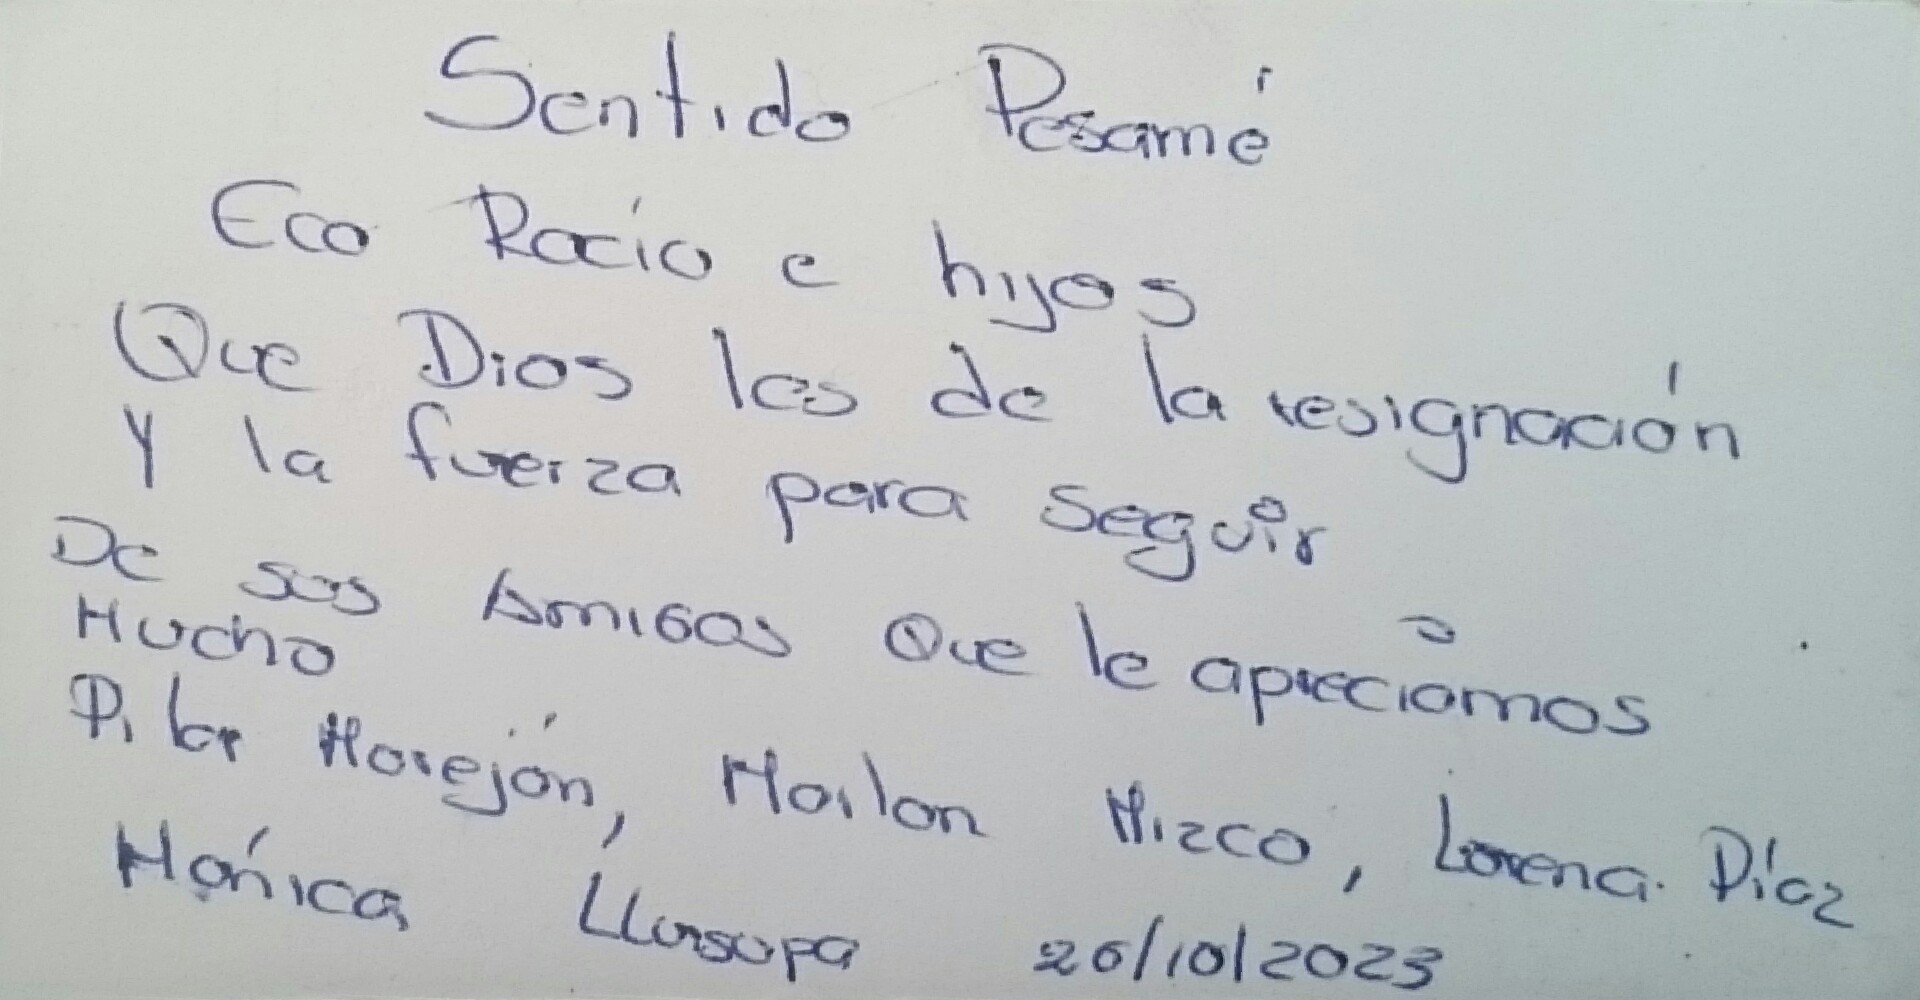 Sentido Pesamé
Eco Rocío e hijos
Que Dios les de la resignación
Y la fuerza para seguir
De sus Amigas que le apreciamos
Mucho
Pilar Morejón, Marlon Mizco, Lorena. Díaz
Mónica Llursupa 26/10/2023